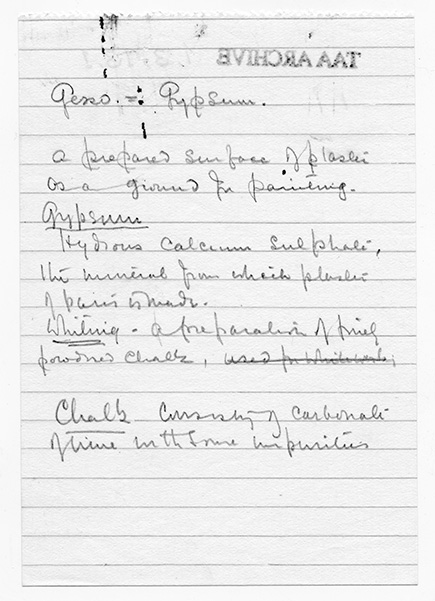 TAA ARCHIVE
Gesso. = Gypsum.
a prepared surface of plaster
as a ground for painting.
Gypsum
Hydrous Calcium Sulphate,
the mineral from which plaster
of paris is made.
Whiting - a preparation of finely
powdered chalk, used for whitewash,
Chalk consisting of carbonate
of lime with some impurities